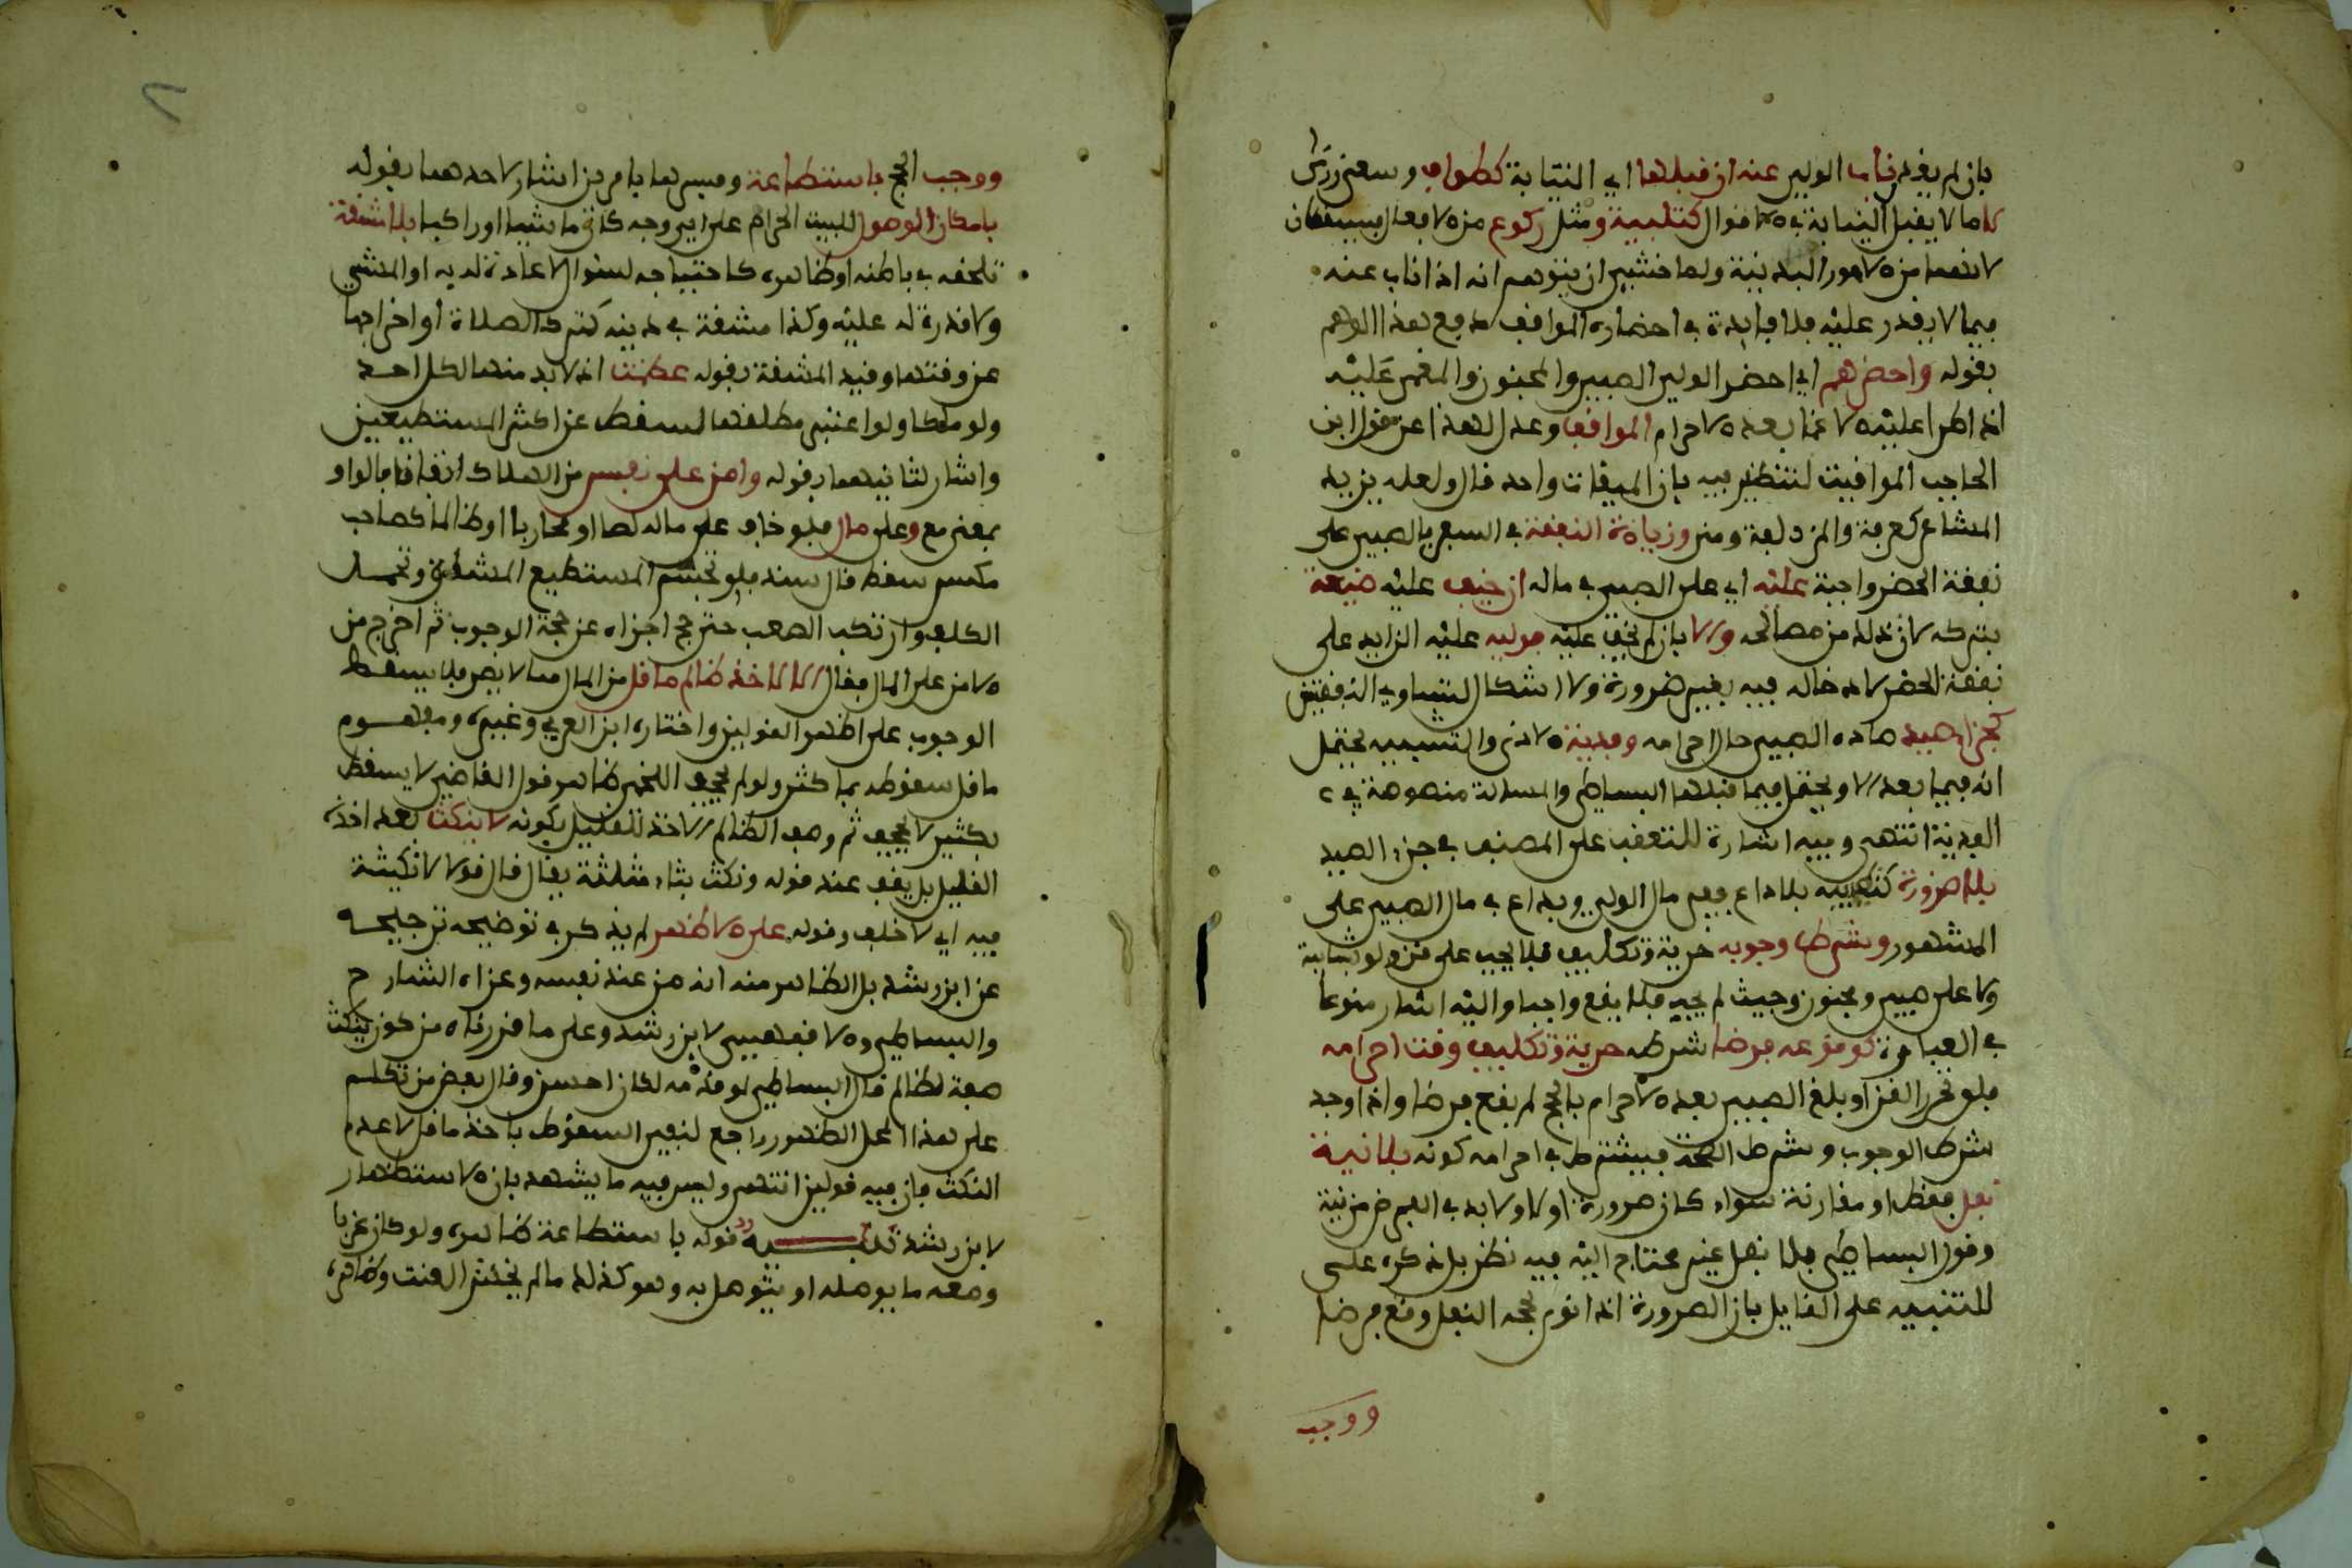 بان لم يقدر ناب الولي عنه ان قبلها اي النيابة كطواف وسعي ورمي
لا ما لا يقبل النيابة في الاقوال كتلبية ومثل ركوع من الافعال فيسقطان
لانهما من الامور البدنية ولما خشي ان يتوهم انه اذا ناب عنه
فيما لا يقدر عليه فلا فايدة في احضاره المواقف دفع هذا الوهم
بقوله واحضرهم اي احضر الولي الصبي والمجنون والمغمى عليه
اذا طرا عليه الاغما بعد الاحرام المواقف وعدل هذا عن قول ابن
الحاجب المواقيت لتنظير فيه بان الميقات واحد قال ولعله يريد
المشاعر كعرفة والمزدلفة ومنى وزيادة النفقة في السفر بالصبي على
نفقة الحضر واجبة عليه اي على الصبي في ماله ان خيف عليه ضيعة
بتركه لان ذلك من مصالحه والا بان لم يخف عليه فوليه عليه الزايد على
نفقة الحضر لادخاله فيه بغير ضرورة ولا اشكال لتساوي النفقتين
كجزاء صيد صاده الصبي حال احرامه وفدية الاذى والتشبيه يحتمل
انه فيما بعد الا ويحتمل فيما قبلها البساطي والمسالة منصوصة في
الفدية انتهى وفيه اشارة للتعقب على المصنف في جزاء الصيد
بلا ضرورة كتطييبه بلا داع ففي مال الولي وبداع في مال الصبي على
المشهور وشرط وجوبه حرية وتكليف فلا يجب على قن ولو بشايبة
ولا على صبي ومجنون وحيث لم يجب فلا يقع واجبا واليه اشار منوعا
في العبارة كوقوعه فرضا شرطه حرية وتكليف وقت احرامه
فلو تحرر القن او بلغ الصبي بعد الاحرام بالحج لم يقع فرضا واذا وجد
شرط الوجوب وشرط الصحة فيشترط في احرامه كونه بلا نية
نفل فقط او مقارنة سواء كان صرورة او لا ولا بد في الفرض من نية
وقول البساطي بلا نفل غير محتاج اليه فيه نظر بل ذكره على
للتنبيه على القايل بان الصرورة اذا نوى بحجه النفل وقع فرضا
ووجب
ووجب الحج باستطاعة وفسرها بامرين اشار لاحدهما بقوله
بامكان الوصول للبيت الحرام على اي وجه كان ماشيا او راكبا بلا مشقة
تلحقه في باطنه او ظاهره كاحتياجه لسؤال لا عادة لديه او المشي
ولا قدرة له عليه وكذا مشقة في دينه كترك الصلاة او اخراجها
عن وقتها وقيد المشقة بقوله عظمت اذ لا بد منها لكل احد
ولو ملكا ولو اعتبر مطلقها لسقط عن اكثر المستطيعين
واشار لثانيهما بقوله وامن على نفس من الهلاك اتفاقا فالواو
بمعنى مع وعلى مال فلو خاف على ماله لصا او محاربا او ظالما كصاحب
مكس سقط قال سند فلو تجشم المستطيع المشقة وتحمل
الكلف وارتكب الصعب حتى حج اجزاه عن حجة الوجوب ثم اخرج من
الامن على المال فقال الا لاخذ ظالم ما قل من المال مما لا يضر فلا يسقط
الوجوب على اظهر القولين واختاره ابن العربي وغيره ومفهوم
ما قل سقوطه بما كثر ولو لم يجحف اللخمي ظاهر قول القاضي لا يسقط
بكثير لا يجحف ثم وصف الظالم الاخذ للقليل بكونه لا ينكث بعد اخذه
القليل بل يقف عند قوله ونكث بثاء مثلثة يقال قال قولا لا نكيثة
فيه اي لا خلف وقوله على الاظهر لم يذكر في توضيحه ترجيحه
عن ابن رشد بل الظاهر منه انه من عند نفسه وعزاه الشارح
والبساطي والاقفهسي لابن رشد وعلى ما قررناه من كون ينكث
صفة لظالم قال البساطي لو قدمه لكان احسن وقال بعض من تكلم
على هذا المحل الظهور راجع لنفي السقوط باخذ ما قل لا عدم
النكث فان فيه قولين انتهى وليس فيه ما يشهد بان الاستظهار
لابن رشد تنبيه قوله باستطاعة ظاهره ولو كان عزبا
ومعه ما يوصله او يتوصل به وهو كذلك ما لم يخش العنت وظاهره